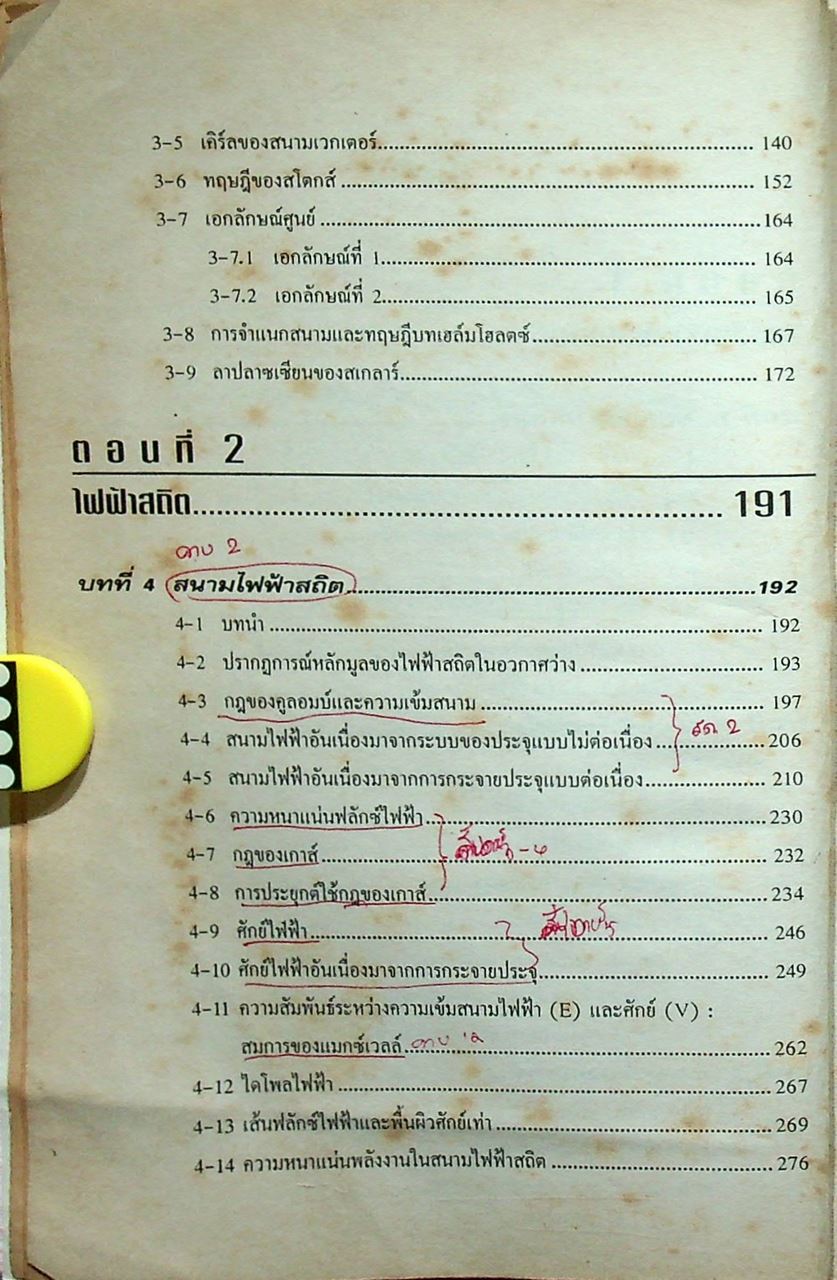 3-5 เคิร์ลของสนามเวกเตอร์........ 140
3-6 ทฤษฎีของสโตกส์........ 152
3-7 เอกลักษณ์ศูนย์........ 164
3-7.1 เอกลักษณ์ที่ 1........ 164
3-7.2 เอกลักษณ์ที่ 2........ 165
3-8 การจำแนกสนามและทฤษฎีบทเฮล์มโฮลตซ์........ 167
3-9 ลาปลาซเซียนของสเกลาร์........ 172
ตอนที่ 2
ไฟฟ้าสถิต........ 191
คาบ 2
บทที่ 4 สนามไฟฟ้าสถิต........ 192
4-1 บทนำ........ 192
4-2 ปรากฏการณ์หลักมูลของไฟฟ้าสถิตในอวกาศว่าง........ 193
4-3 กฎของคูลอมบ์และความเข้มสนาม........ 197
4-4 สนามไฟฟ้าอันเนื่องมาจากระบบของประจุแบบไม่ต่อเนื่อง........ 206
4-5 สนามไฟฟ้าอันเนื่องมาจากการกระจายประจุแบบต่อเนื่อง........ 210
4-6 ความหนาแน่นฟลักซ์ไฟฟ้า........ 230
4-7 กฎของเกาส์........ 232
4-8 การประยุกต์ใช้กฎของเกาส์........ 234
4-9 ศักย์ไฟฟ้า........ 246
4-10 ศักย์ไฟฟ้าอันเนื่องมาจากการกระจายประจุ........ 249
4-11 ความสัมพันธ์ระหว่างความเข้มสนามไฟฟ้า (E) และศักย์ (V) :
สมการของแมกซ์เวลล์........ 262
4-12 ไดโพลไฟฟ้า........ 267
4-13 เส้นฟลักซ์ไฟฟ้าและพื้นผิวศักย์เท่า........ 269
4-14 ความหนาแน่นพลังงานในสนามไฟฟ้าสถิต........ 276